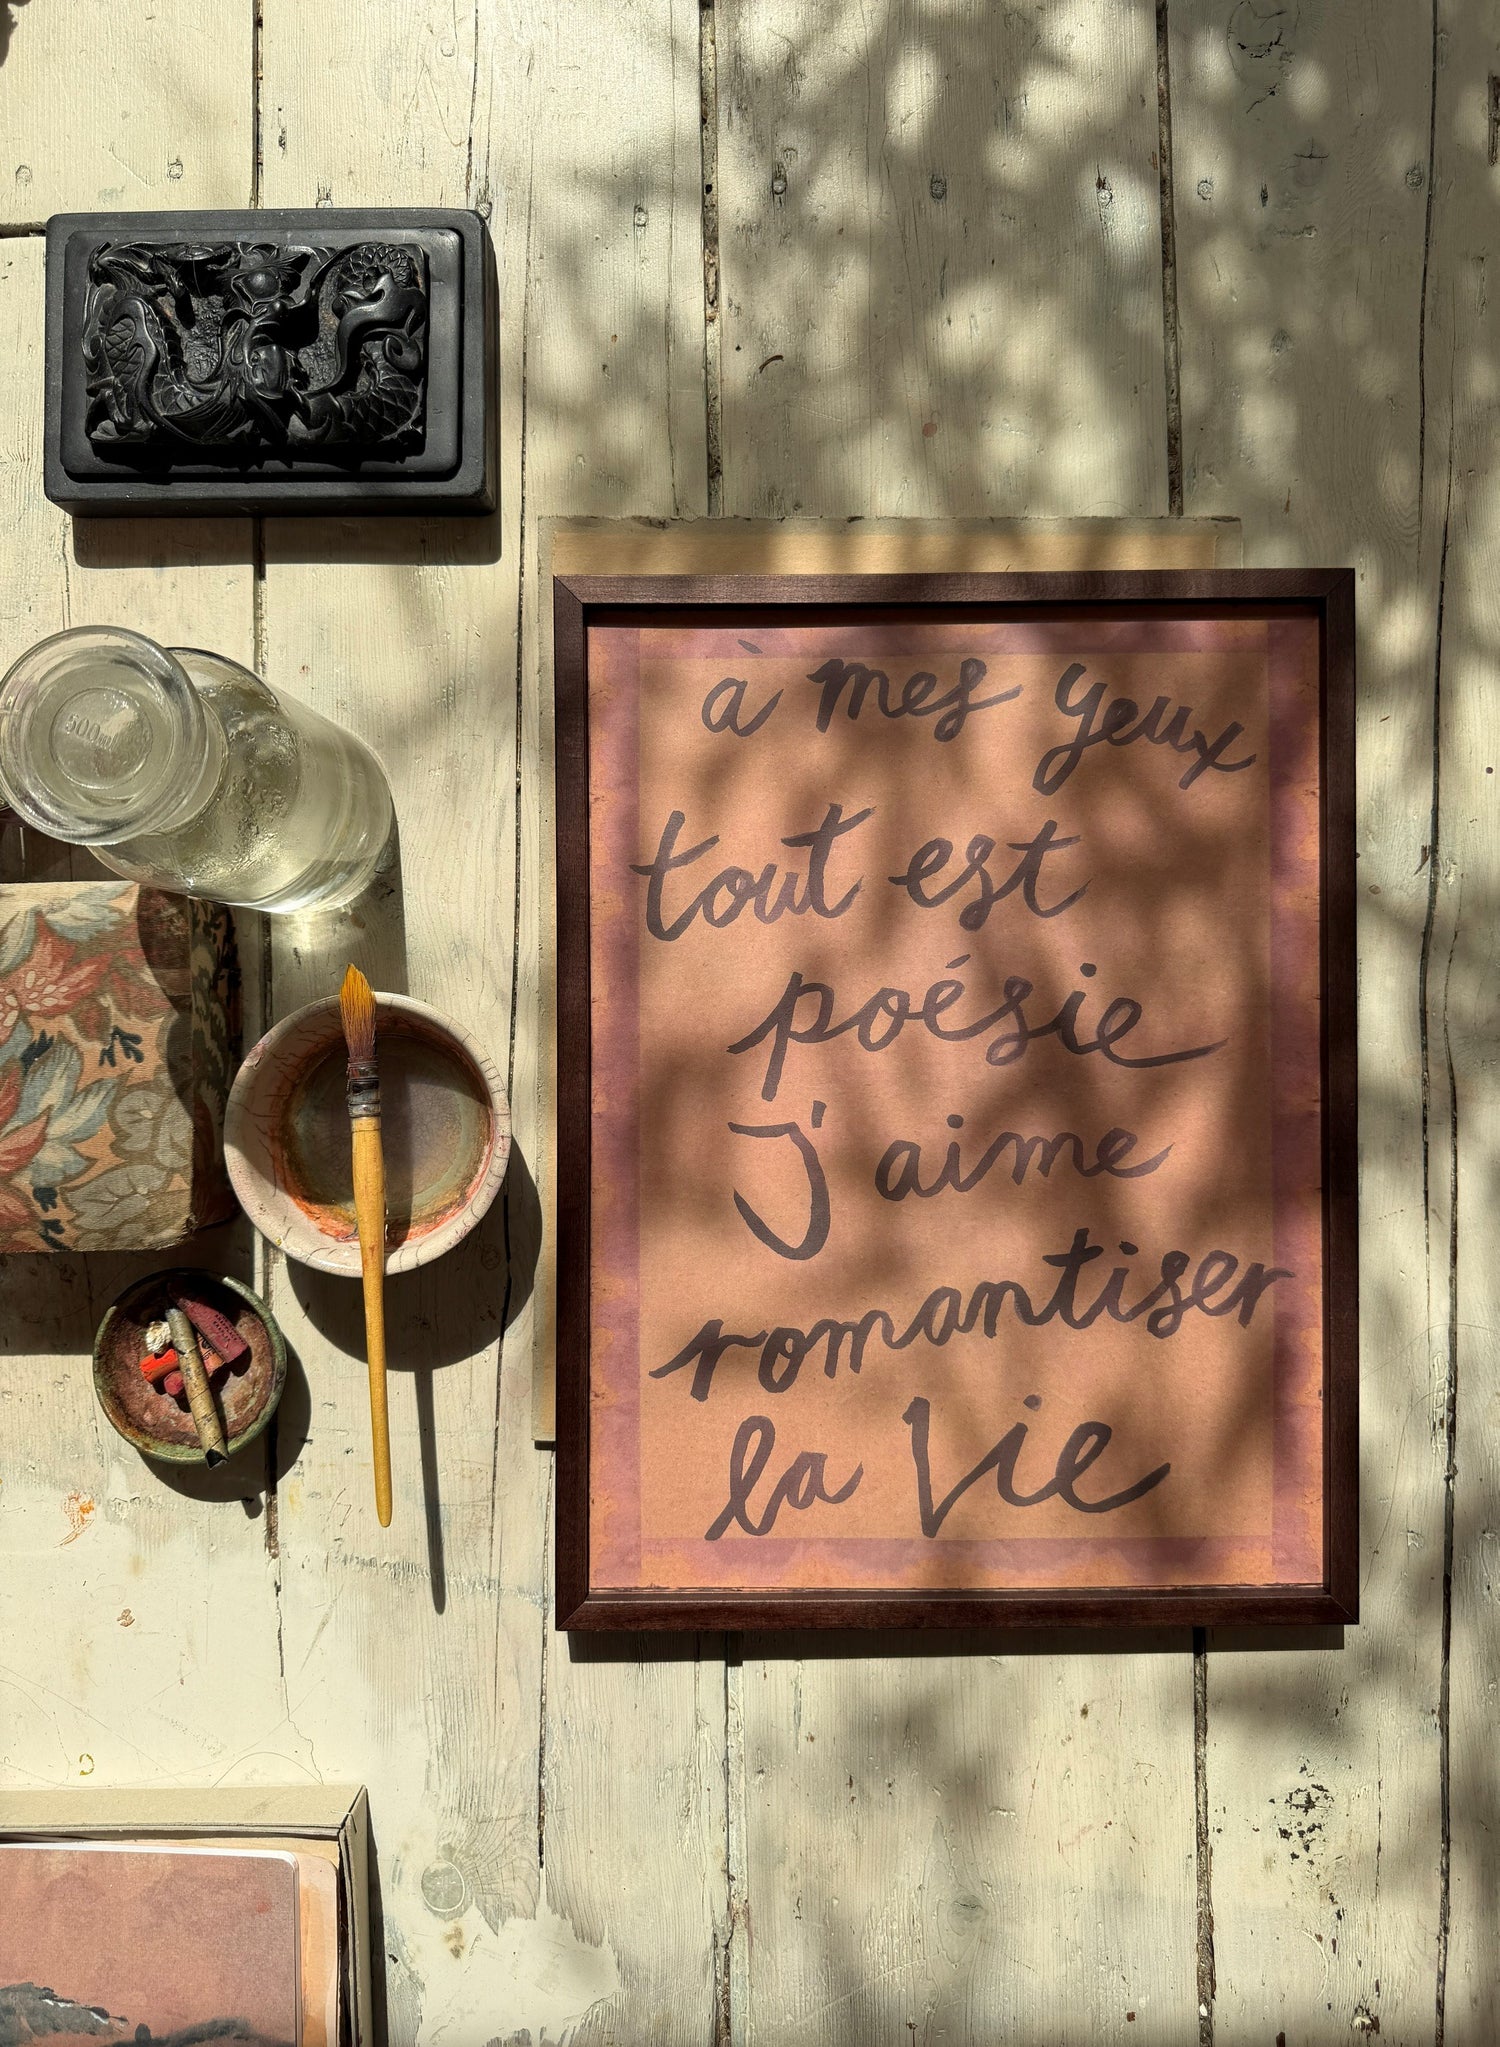 à mes yeux
tout est
poésie
J'aime
romantiser
la vie
500ml